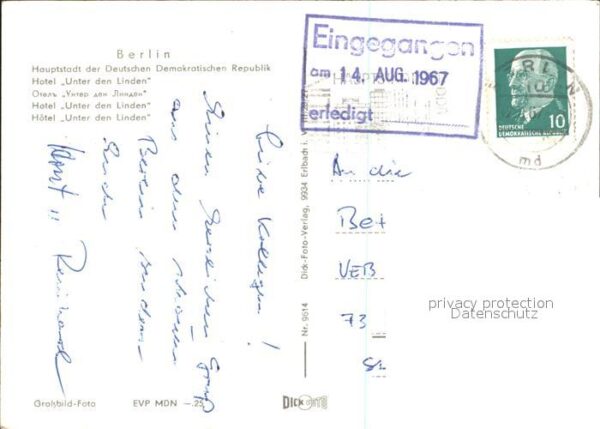 Berlin
Hauptstadt der Deutschen Demokratischen Republik
Hotel „Unter den Linden“
Отель „Унтер ден Линден“
Hotel „Unter den Linden“
Hôtel „Unter den Linden“
Liebe Kollegen!
Einen herzlichen Gruß
aus dem schönen
Berlin senden
Euch
Reinhard
Großbild-Foto
EVP MDN —.25
Nr. 9614
Dick-Foto-Verlag, 9934 Erlbach i. V.
DICK FOTO
Eingegangen
am 14. AUG. 1967
erledigt
DEUTSCHE
DEMOKRATISCHE
10
An die
Bet
VEB
73
privacy protection
Datenschutz